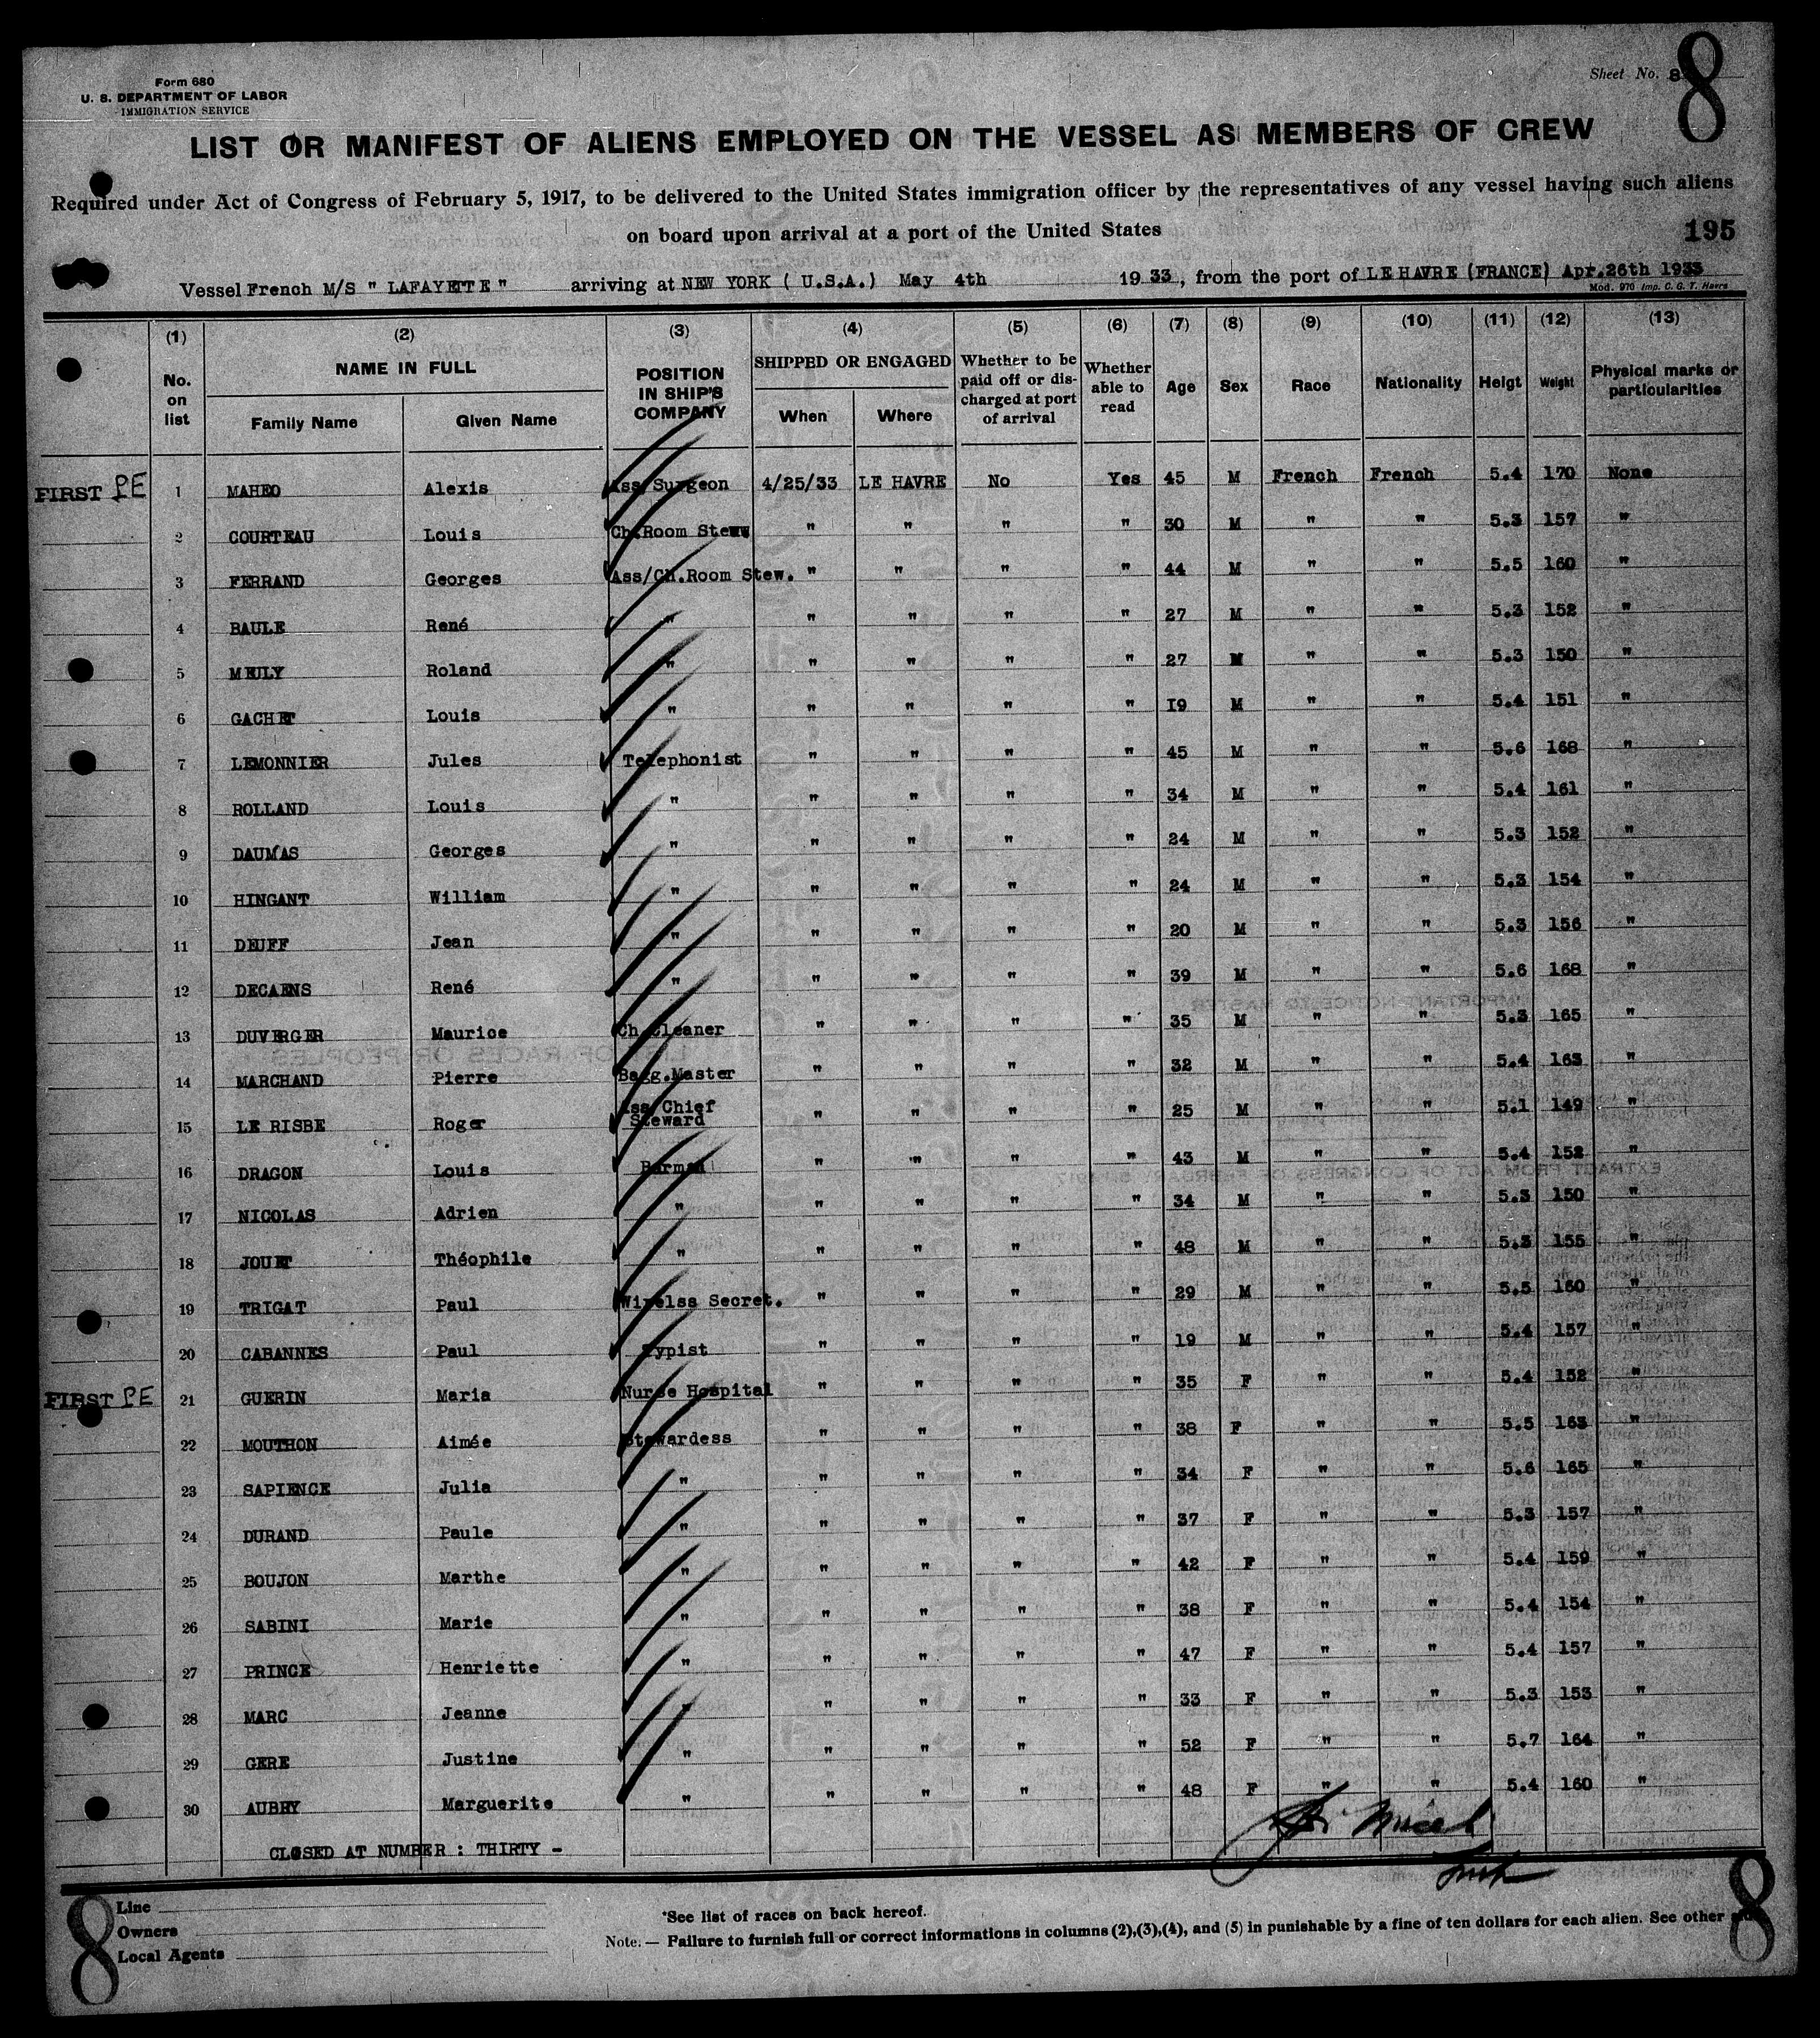 Form 680
U. S. DEPARTMENT OF LABOR
IMMIGRATION SERVICE
Sheet No. 8
8
LIST OR MANIFEST OF ALIENS EMPLOYED ON THE VESSEL AS MEMBERS OF CREW
Required under Act of Congress of February 5, 1917, to be delivered to the United States immigration officer by the representatives of any vessel having such aliens
on board upon arrival at a port of the United States
195
Vessel French M/S " LAFAYETTE " arriving at NEW YORK ( U.S.A.) May 4th 1933, from the port of LE HAVRE (FRANCE) Apr.26th 1933
Mod. 970 Imp. C. G. T. Havre
(1) (2) (3) (4) (5) (6) (7) (8) (9) (10) (11) (12) (13)
No. on list NAME IN FULL Family Name Given Name POSITION IN SHIP'S COMPANY SHIPPED OR ENGAGED When Where Whether to be paid off or discharged at port of arrival Whether able to read Age Sex Race Nationality Heigt Weight Physical marks or particularities
FIRST PE 1 MAHEO Alexis Ass/Surgeon 4/25/33 LE HAVRE No Yes 45 M French French 5.4 170 None
2 COURTEAU Louis Ch.Room Stew " " " " 30 M " " 5.3 157 "
3 FERRAND Georges Ass/Ch.Room Stew. " " " " 44 M " " 5.5 160 "
4 BAULE René " " " " " 27 M " " 5.3 152 "
5 MEILY Roland " " " " " 27 M " " 5.3 150 "
6 GACHET Louis " " " " " 19 M " " 5.4 151 "
7 LEMONNIER Jules Telephonist " " " " 45 M " " 5.6 168 "
8 ROLLAND Louis " " " " " 34 M " " 5.4 161 "
9 DAUMAS Georges " " " " " 24 M " " 5.3 152 "
10 HINGANT William " " " " " 24 M " " 5.3 154 "
11 DEUFF Jean " " " " " 20 M " " 5.3 156 "
12 DECAENS René " " " " " 39 M " " 5.6 168 "
13 DUVERGER Maurice Ch.Cleaner " " " " 35 M " " 5.3 165 "
14 MARCHAND Pierre Bagg.Master " " " " 32 M " " 5.4 163 "
15 LE RISBE Roger Ass/Chief Steward " " " " 25 M " " 5.1 149 "
16 DRAGON Louis Barman " " " " 43 M " " 5.4 152 "
17 NICOLAS Adrien " " " " " 34 M " " 5.3 150 "
18 JOUET Théophile " " " " " 48 M " " 5.3 155 "
19 TRIGAT Paul Wirelss Secret. " " " " 29 M " " 5.5 160 "
20 CABANNES Paul Typist " " " " 19 M " " 5.4 157 "
FIRST PE 21 GUERIN Maria Nurse Hospital " " " " 35 F " " 5.4 152 "
22 MOUTHON Aimée Stewardess " " " " 38 F " " 5.5 163 "
23 SAPIENCE Julia " " " " " 34 F " " 5.6 165 "
24 DURAND Paule " " " " " 37 F " " 5.3 157 "
25 BOUJON Marthe " " " " " 42 F " " 5.4 159 "
26 SABINI Marie " " " " " 38 F " " 5.4 154 "
27 PRINCE Henriette " " " " " 47 F " " 5.4 157 "
28 MARC Jeanne " " " " " 33 F " " 5.3 153 "
29 GERE Justine " " " " " 52 F " " 5.7 164 "
30 AUBRY Marguerite " " " " " 48 F " " 5.4 160 "
CLOSED AT NUMBER : THIRTY -
8 8
Line
Owners
Local Agents
*See list of races on back hereof.
Note. — Failure to furnish full or correct informations in columns (2),(3),(4), and (5) in punishable by a fine of ten dollars for each alien. See other